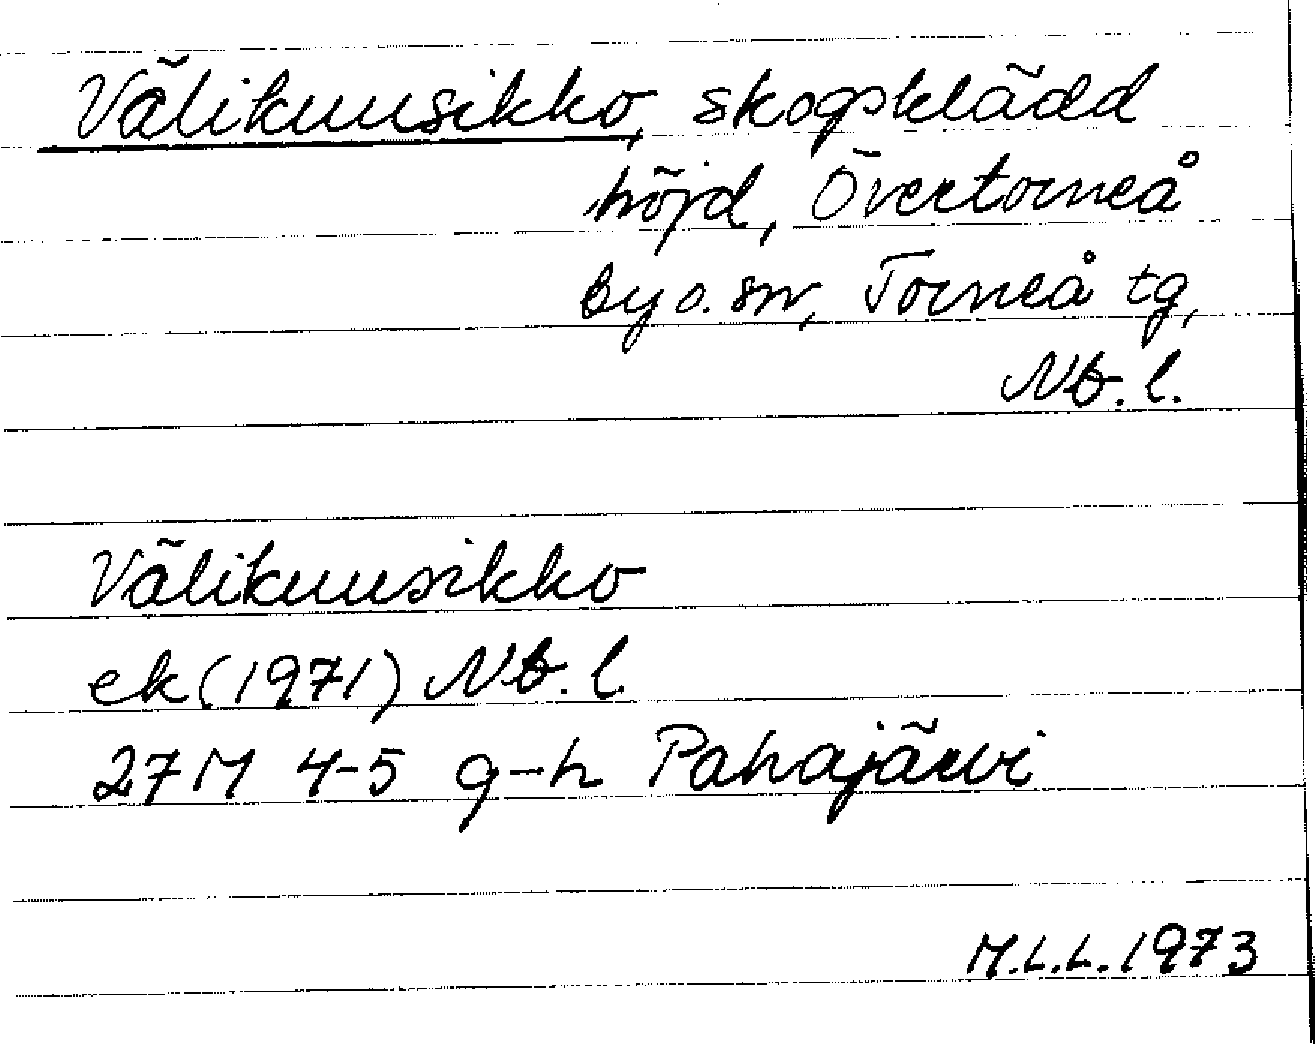 Välikuusikko, skogsklädd
höjd, Övertorneå
by o. sn, Torneå tg,
Nb. l.
Välikuusikko
ek (1971) Nb. l.
27M 4-5 g-h Pahajärvi
M.L.L. 1973